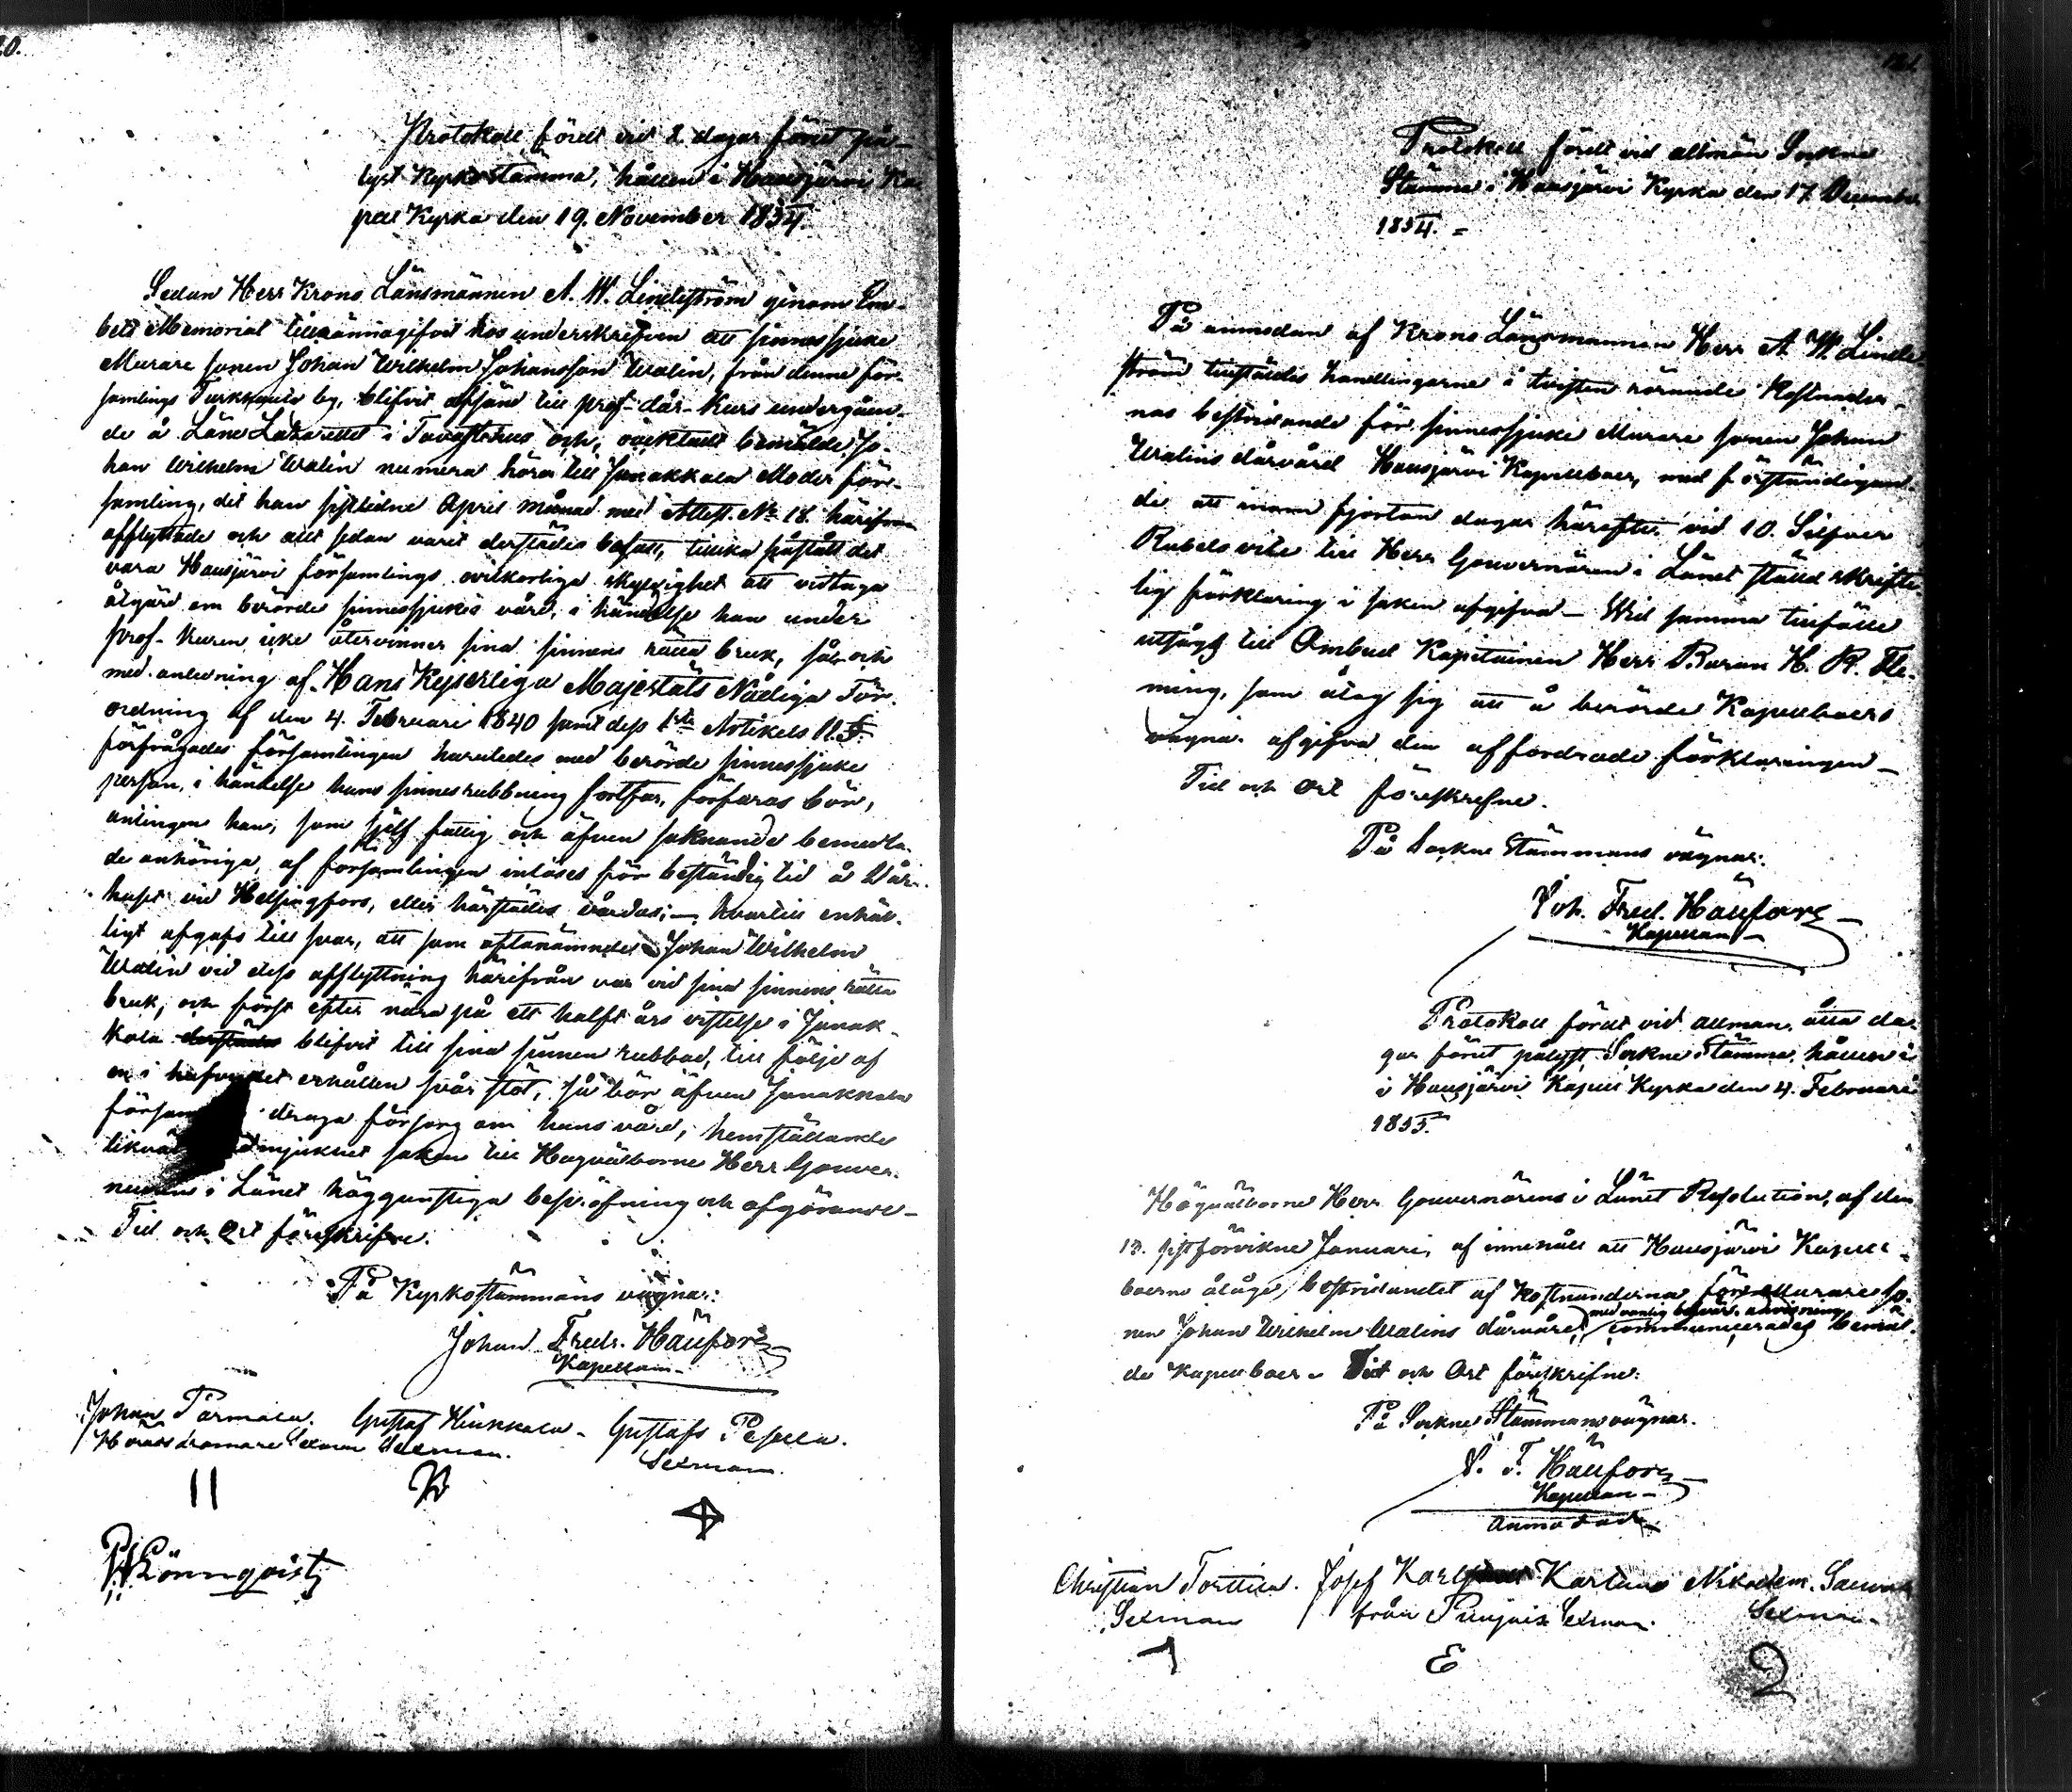 Protokoll, fördt vid 8. dagar förut på-
lyst Kyrkostämma, hållen i Hausjärvi Ka-
pell Kyrka den 19. November 1854.
Sedan Herr Krono Länsmannen A. W. Lindeström genom Em-
bets Memorial tillkännagifvit hos underskrifven att sinnessjuke
Murare sonen Johan Wilhelm Johansson Walin, från denne för-
samlings Turkhauta by, blifvit afsänd till prof-dår-kurs undergåen-
de å Läns Lazarettet i Tavastehus och, oaktadt bemälde Jo-
han Wilhelm Walin numera hörer till Janakkala Moder för-
samling, dit han sistledne April månad med Attest. No 18. härifrån
afflyttade och allt sedan varit derstädes bofast, tillika påstått det
vara Hausjärvi församlings ovilkorliga skyldighet att vidtaga
åtgärd om berörde sinnessjukes vård, i händelse han under
prof-kuren icke återvinner sina sinnens rätta bruk, så och
med anledning af Hans Kejserliga Majestäts Nådiga För-
ordning af den 4. Februari 1840 samt dess 1sta Artikels 11. §.
förfrågades församlingen huruledes med berörde sinnessjuke
person, i händelse hans sinnesrubbning fortfar, förfaras bör,
antingen han, som sjelf fattig och äfven saknande bemedla-
de anhöriga, af församlingen inlöses för beständig tid å Dår-
huset vid Helsingfors, eller härstädes vårdas; — hvartill enhäl-
ligt afgafs till svar, att som oftanämnde Johan Wilhelm
Walin vid dess afflyttning härifrån var vid sina sinnens rätta
bruk, och först efter nära på ett halft års vistelse i Janak-
kala derstädes blifvit till sina sinnen rubbad, till följe af
en i hufvudet erhållen svår stöt, så bör äfven Janakkala
försam draga försorg om hans vård, hemställande
likväl ödmjukast saken till Högvälborne Herr Gouver-
neurens i Länet höggunstiga bepröfning och afgörande —
Tid och Ort föreskrifne.
På Kyrkostämmans vägnar:
Johan Fredr. Häufors
Kapellan
Johan Parmala. Gustaf Hiukkala - Gustafs Pesulla.
Sexman Sexman. Sexman.
11
W Lönnqvist
Protokoll fördt vid allmän Sockne
Stämma i Hausjärvi Kyrka den 17 December
1854. =
På anmodan af Krono Länsmannen Herr A. W. Linde-
ström tillställdes handlingarne i tvisten rörande kostnader-
nas bestridande för sinnessjuke Murare sonen Johan
Walins dårvård Hausjärvi Kapellboer, med förständigan-
de att inom fjorton dagar härefter vid 10. Silfver
Rubels vite till Herr Gouvernören i Länet ställd skrift-
lig förklaring i saken afgifva — Wid samma tillfälle
utsågs till Ombud Kapitainen Herr Baron H. R. Fle-
ming, som åtog sig att å berörde Kapellboers
vägnar afgifva den affordrade förklaringen —
Tid och Ort föreskrefne.
På Sockne Stämmans vägnar:
Joh. Fred. Häufors
- Kapellan -
Protokoll fördt vid allmän, åtta da-
gar förut pålyst Sockne Stämma, hållen i
i Hausjärvi Kapell Kyrka den 4. Februari
1855.
Högvälborne Herr Gouvernörens i Länet Resolution, af den
13. sistförvikne Januari, af innehåll att Hausjärvi Kapell-
boerne ålåge, bestridandet af kostnaderna för Murare so-
med vanlig besvärs anvisning
nen Johan Wilhelm Walins dårvård, communicerades bemäl-
de Kapellboer. Tid och Ort föreskrifne:
På Sockne Stämmans vägnar.
J. F. Häufors
Kapellan -
Christian Torttila. Josef Karl Karlund Nikodem.
Sexman från Sexman. Sexman
E
2